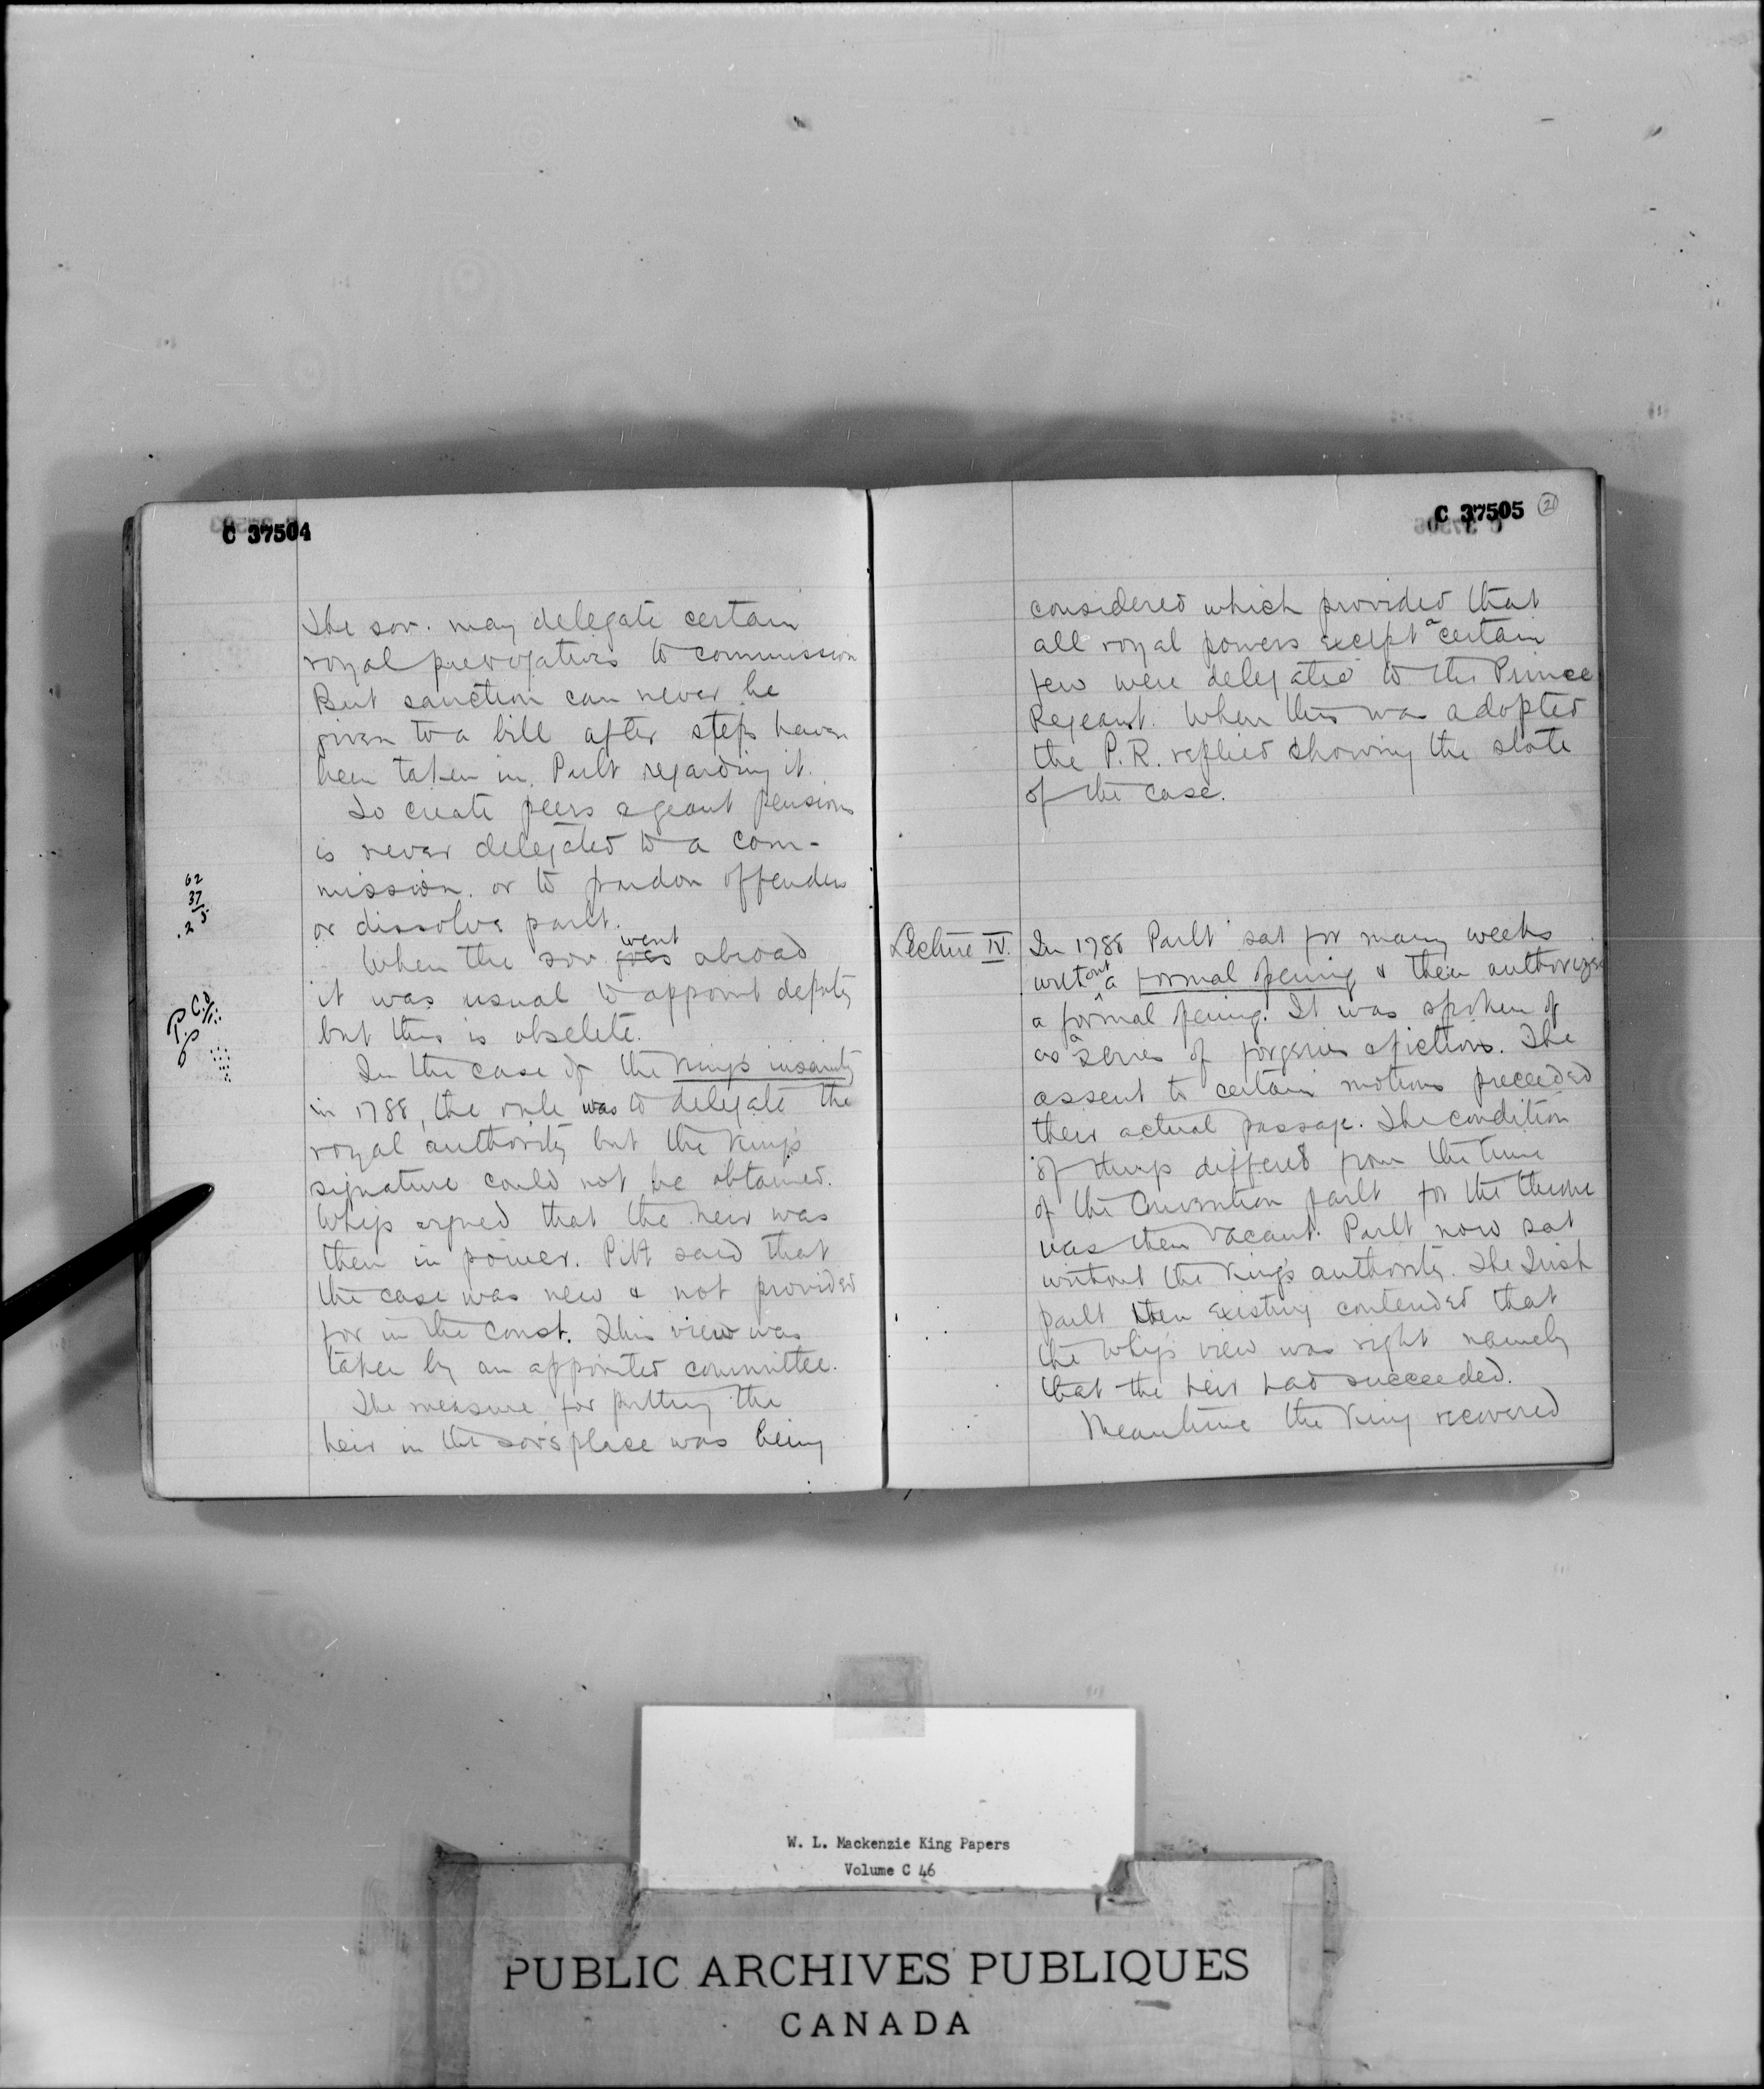 C 37504
The sov. may delegate certain
royal prerogatives to commission
But sanction can never be
given to a bill after steps have
been taken in Parlt regarding it.
To create peers or grant pensions
is never delegated to a com-
mission. or to pardon offenders
or dissolve parlt.
When the sov. goes went abroad
it was usual to appoint deputy
but this is obselete.
In the case of the King's insanity
in 1788, the rule was to delegate the
royal authority but the King's
signature could not be obtained.
Whigs argued that the heir was
then in power. Pitt said that
the case was new & not provided
for in the const. This view was
taken by an appointed committee.
The measure for putting the
heir in the sov's place was being
62
37
C 37505
21
considered which provided that
all royal powers except a certain
few were delegated to the Prince
Regeant. When this was adopted
the P.R. replied showing the state
of the case.
Lecture IV.
In 1788 Parlt sat for many weeks
without a formal opening & then authorized
a formal opening. It was spoken of
as a series of forgeries & fictions. The
assent to certain motions preceeded
their actual passage. The condition
of things differed from the time
of the Convention parlt for the throne
was then vacant. Parlt now sat
without the King's authority. The Irish
parlt then existing contended that
the Whigs view was right namely
that the heir had succeeded.
Meantime the King recovered
W. L. Mackenzie King Papers
Volume C 46
PUBLIC ARCHIVES PUBLIQUES
CANADA